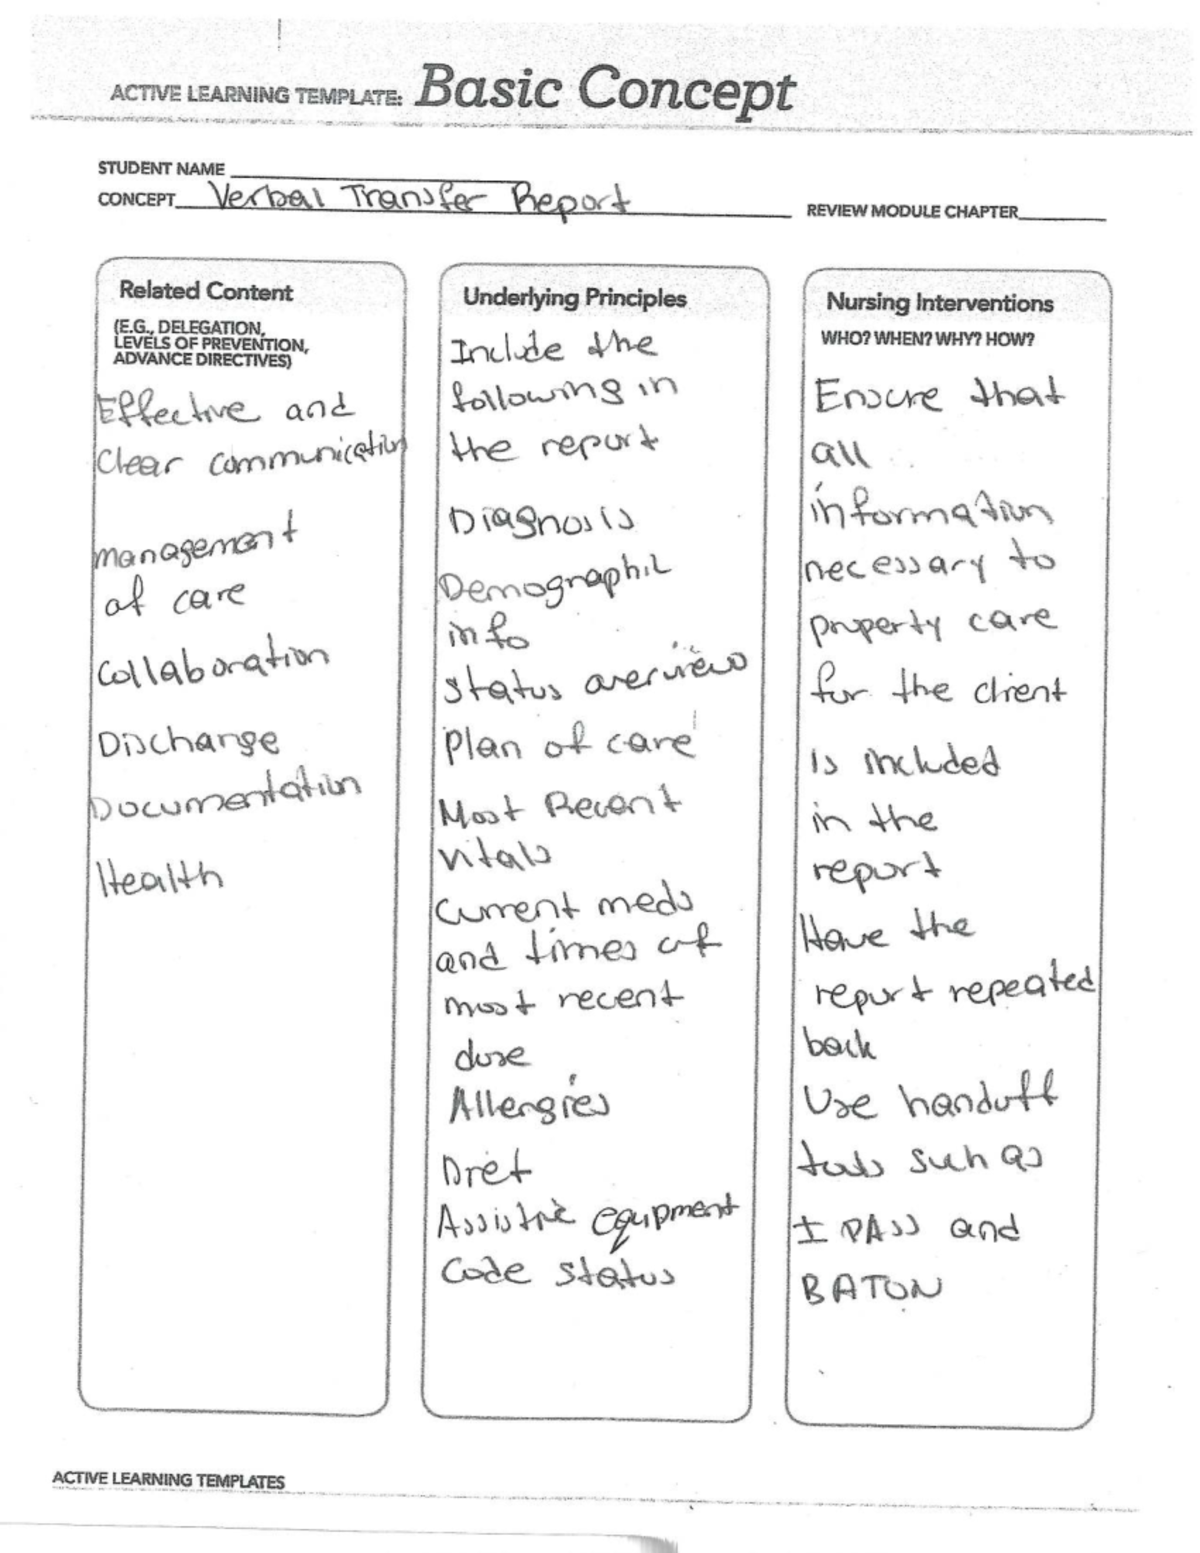 ACTIVE LEARNING TEMPLATE: Basic Concept
STUDENT NAME
CONCEPT Verbal Transfer Report
REVIEW MODULE CHAPTER
Related Content
(E.G., DELEGATION,
LEVELS OF PREVENTION,
ADVANCE DIRECTIVES)
Effective and
Clear communication
management
of care
Collaboration
Discharge
Documentation
Health
Underlying Principles
Include the
following in
the report
Diagnosis
Demographic
info
status overview
Plan of care
Most Recent
vitals
Current meds
and times of
most recent
dose
Allergies
Diet
Assistive equipment
Code status
Nursing Interventions
WHO? WHEN? WHY? HOW?
Ensure that
all
information
necessary to
property care
for the client
Is included
in the
report
Have the
report repeated
back
Use handoff
tools such as
I PASS and
BATON
ACTIVE LEARNING TEMPLATES